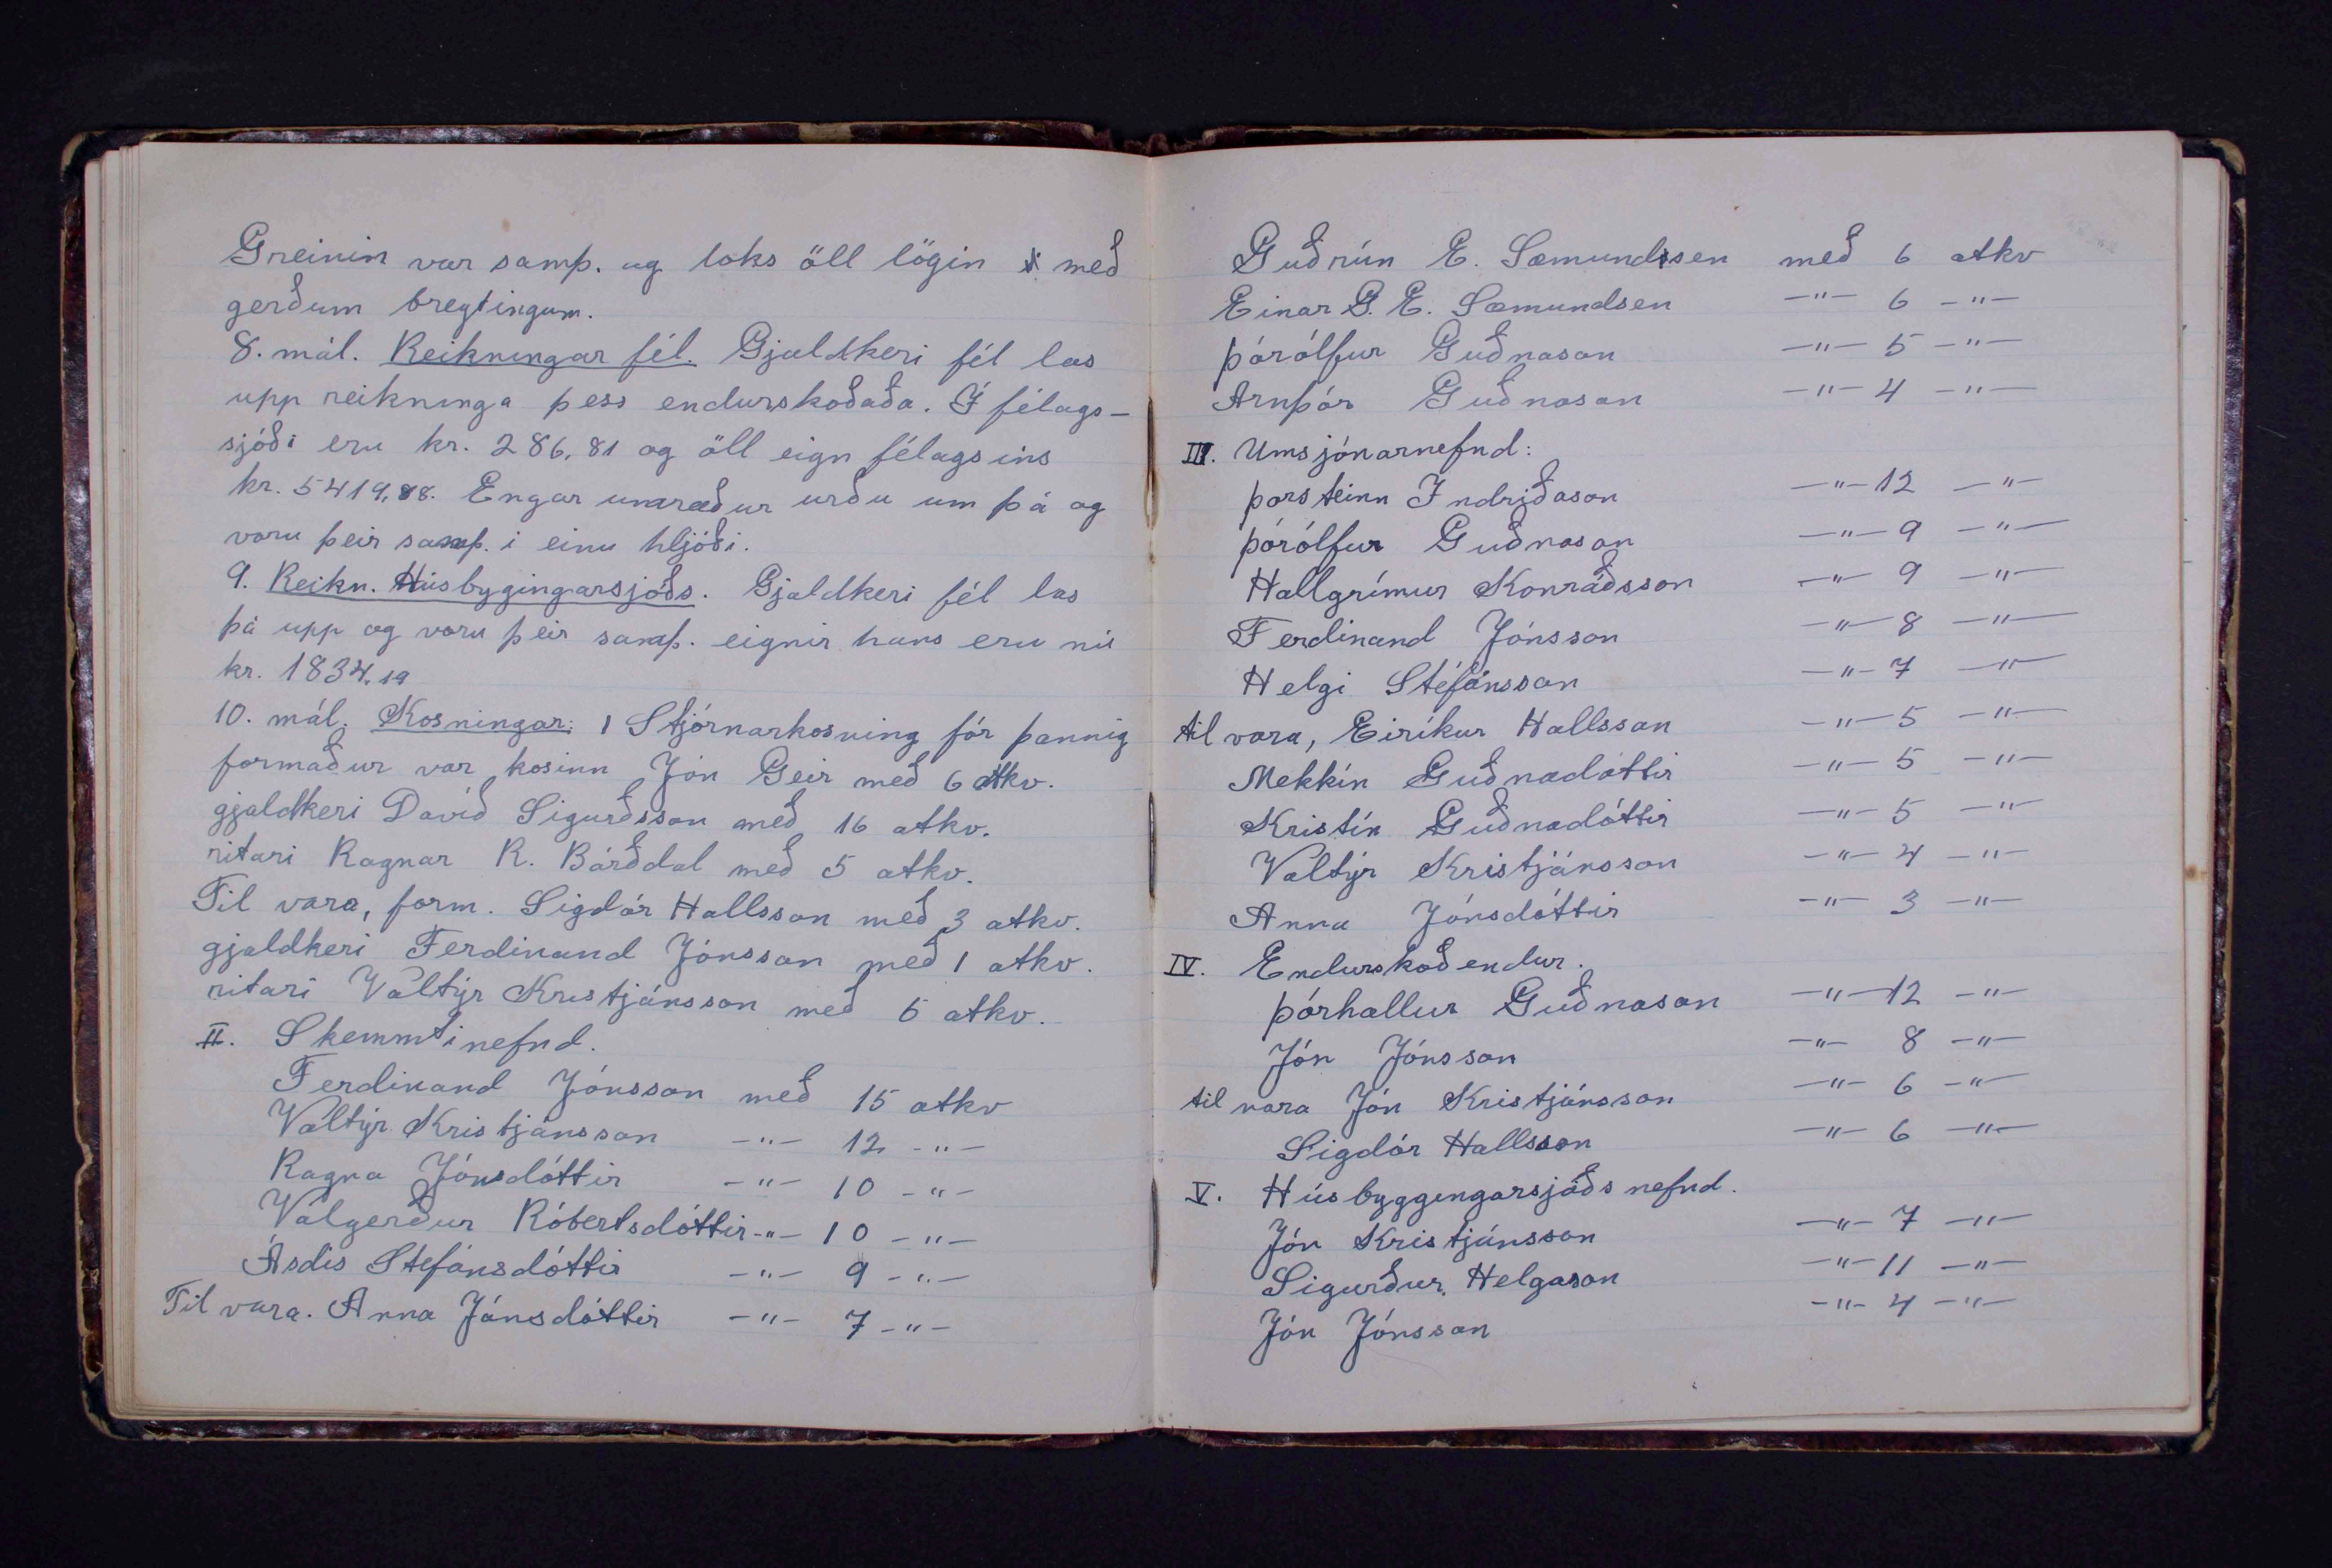 Greinin var samþ. og loks öll lögin með
gerðum breytingum.
8. mál. Reikningar fél. Gjaldkeri fél las
upp reikninga þess endurskoðaða. Í félags-
sjóði eru kr. 286,81 og öll eign félagsins
kr. 5419,88. Engar umræður urðu um þá og
voru þeir samþ. í einu hljóði.
9. Reikn. Húsbygingarsjóðs. Gjaldkeri fél las
þá upp og voru þeir samþ. eignir hans eru nú
kr. 1834,19
10. mál. Kosningar: 1 Stjórnarkosning fór þannig
formaður var kosinn Jón Geir með 6 atkv.
gjaldkeri Davíð Sigurðsson með 16 atkv.
ritari Ragnar R. Bárðdal með 5 atkv.
Til vara, form. Sigdór Hallsson með 3 atkv.
gjaldkeri Ferdinand Jónsson með 1 atkv.
ritari Valtýr Kristjánsson með 6 atkv.
II. Skemmtinefnd.
Ferdinand Jónsson með 15 atkv
Valtýr Kristjánsson -"- 12 -"-
Ragna Jónsdóttir -"- 10 -"-
Valgerður Róbertsdóttir -"- 10 -"-
Ásdís Stefánsdóttir -"- 9 -"-
Til vara. Anna Jónsdóttir -"- 7 -"-
Guðrún E. Sæmundssen með 6 atkv
Einar G. E. Sæmundsen -"- 6 -"-
Þórólfur Guðnason -"- 5 -"-
Arnþór Guðnason -"- 4 -"-
III. Umsjónarnefnd:
Þorsteinn Indriðason -"- 12 -"-
Þórólfur Guðnason -"- 9 -"-
Hallgrímur Konráðsson -"- 9 -"-
Ferdinand Jónsson -"- 8 -"-
Helgi Stefánsson -"- 7 -"-
til vara, Eiríkur Hallsson -"- 5 -"-
Mekkín Guðnadóttir -"- 5 -"-
Kristín Guðnadóttir -"- 5 -"-
Valtýr Kristjánsson -"- 4 -"-
Anna Jónsdóttir -"- 3 -"-
IV. Endurskoðendur.
Þórhallur Guðnason -"- 12 -"-
Jón Jónsson -"- 8 -"-
til vara Jón Kristjánsson -"- 6 -"-
Sigdór Hallsson -"- 6 -"-
V. Húsbyggingarsjóðsnefnd.
Jón Kristjánsson -"- 7 -"-
Sigurður Helgason -"- 11 -"-
Jón Jónsson -"- 4 -"-